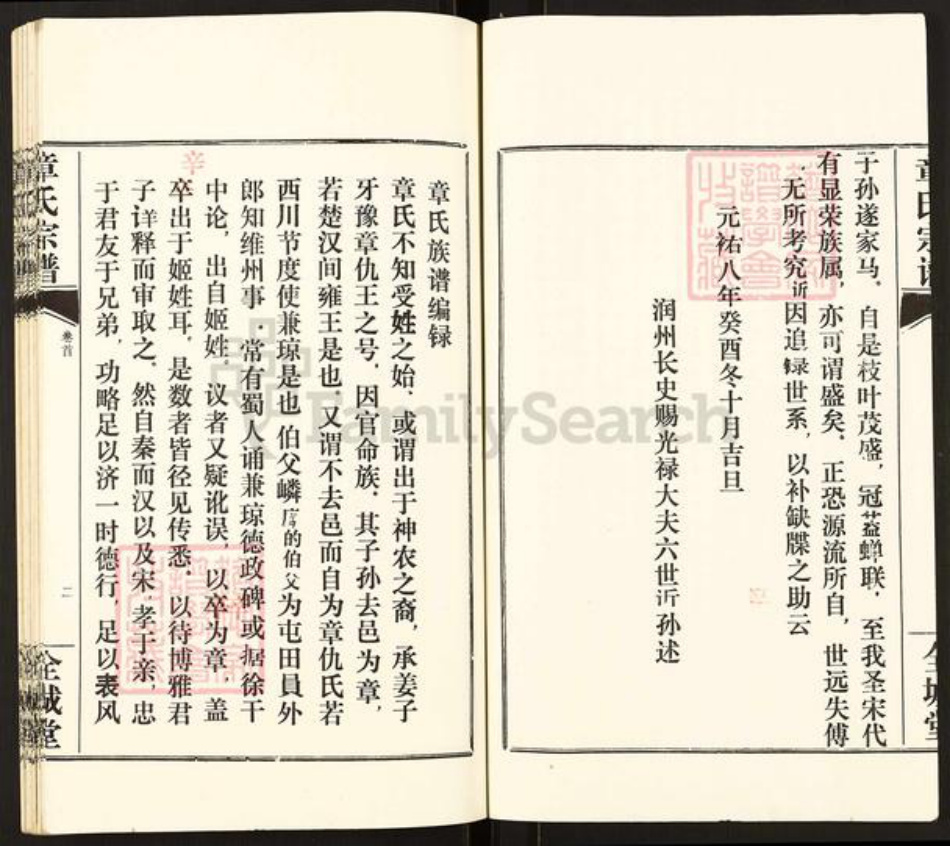 于孙遂家马、自是枝叶茂盛，冠葢蝉联，至我圣宋代
有显荣族属，亦可谓盛矣．正恐源流所自，世远失傅
．无所考究近因追録世系，以补缺牒之助云
元祐八年癸酉冬十月吉旦
润州长史赐光禄大夫六世沂孙述
章氏宗谱
全城堂
章氏族谱编録
章氏不知受姓之始、或谓出于神农之裔，承姜子
牙豫章仇王之号，因官命族．其子孙去邑为章，
若楚汉间雍王是也．又谓不去邑而自为章仇氏若
西川节度使兼琼是也．伯父嶙的伯父为屯田員外
郎知维州事．常有蜀人诵兼琼德政碑或据徐干
中论，出自姬姓．议者又疑讹误，以卒为章，盖
辛
卒出于姬姓耳．是数者皆径见传悉．以待博雅君
子详释而审取之．然自秦而汉以及宋．孝于亲，忠
于君友于兄弟，功略足以济一时德行，足以表风
章氏宗谱
卷首
二
全城堂
FamilySearch